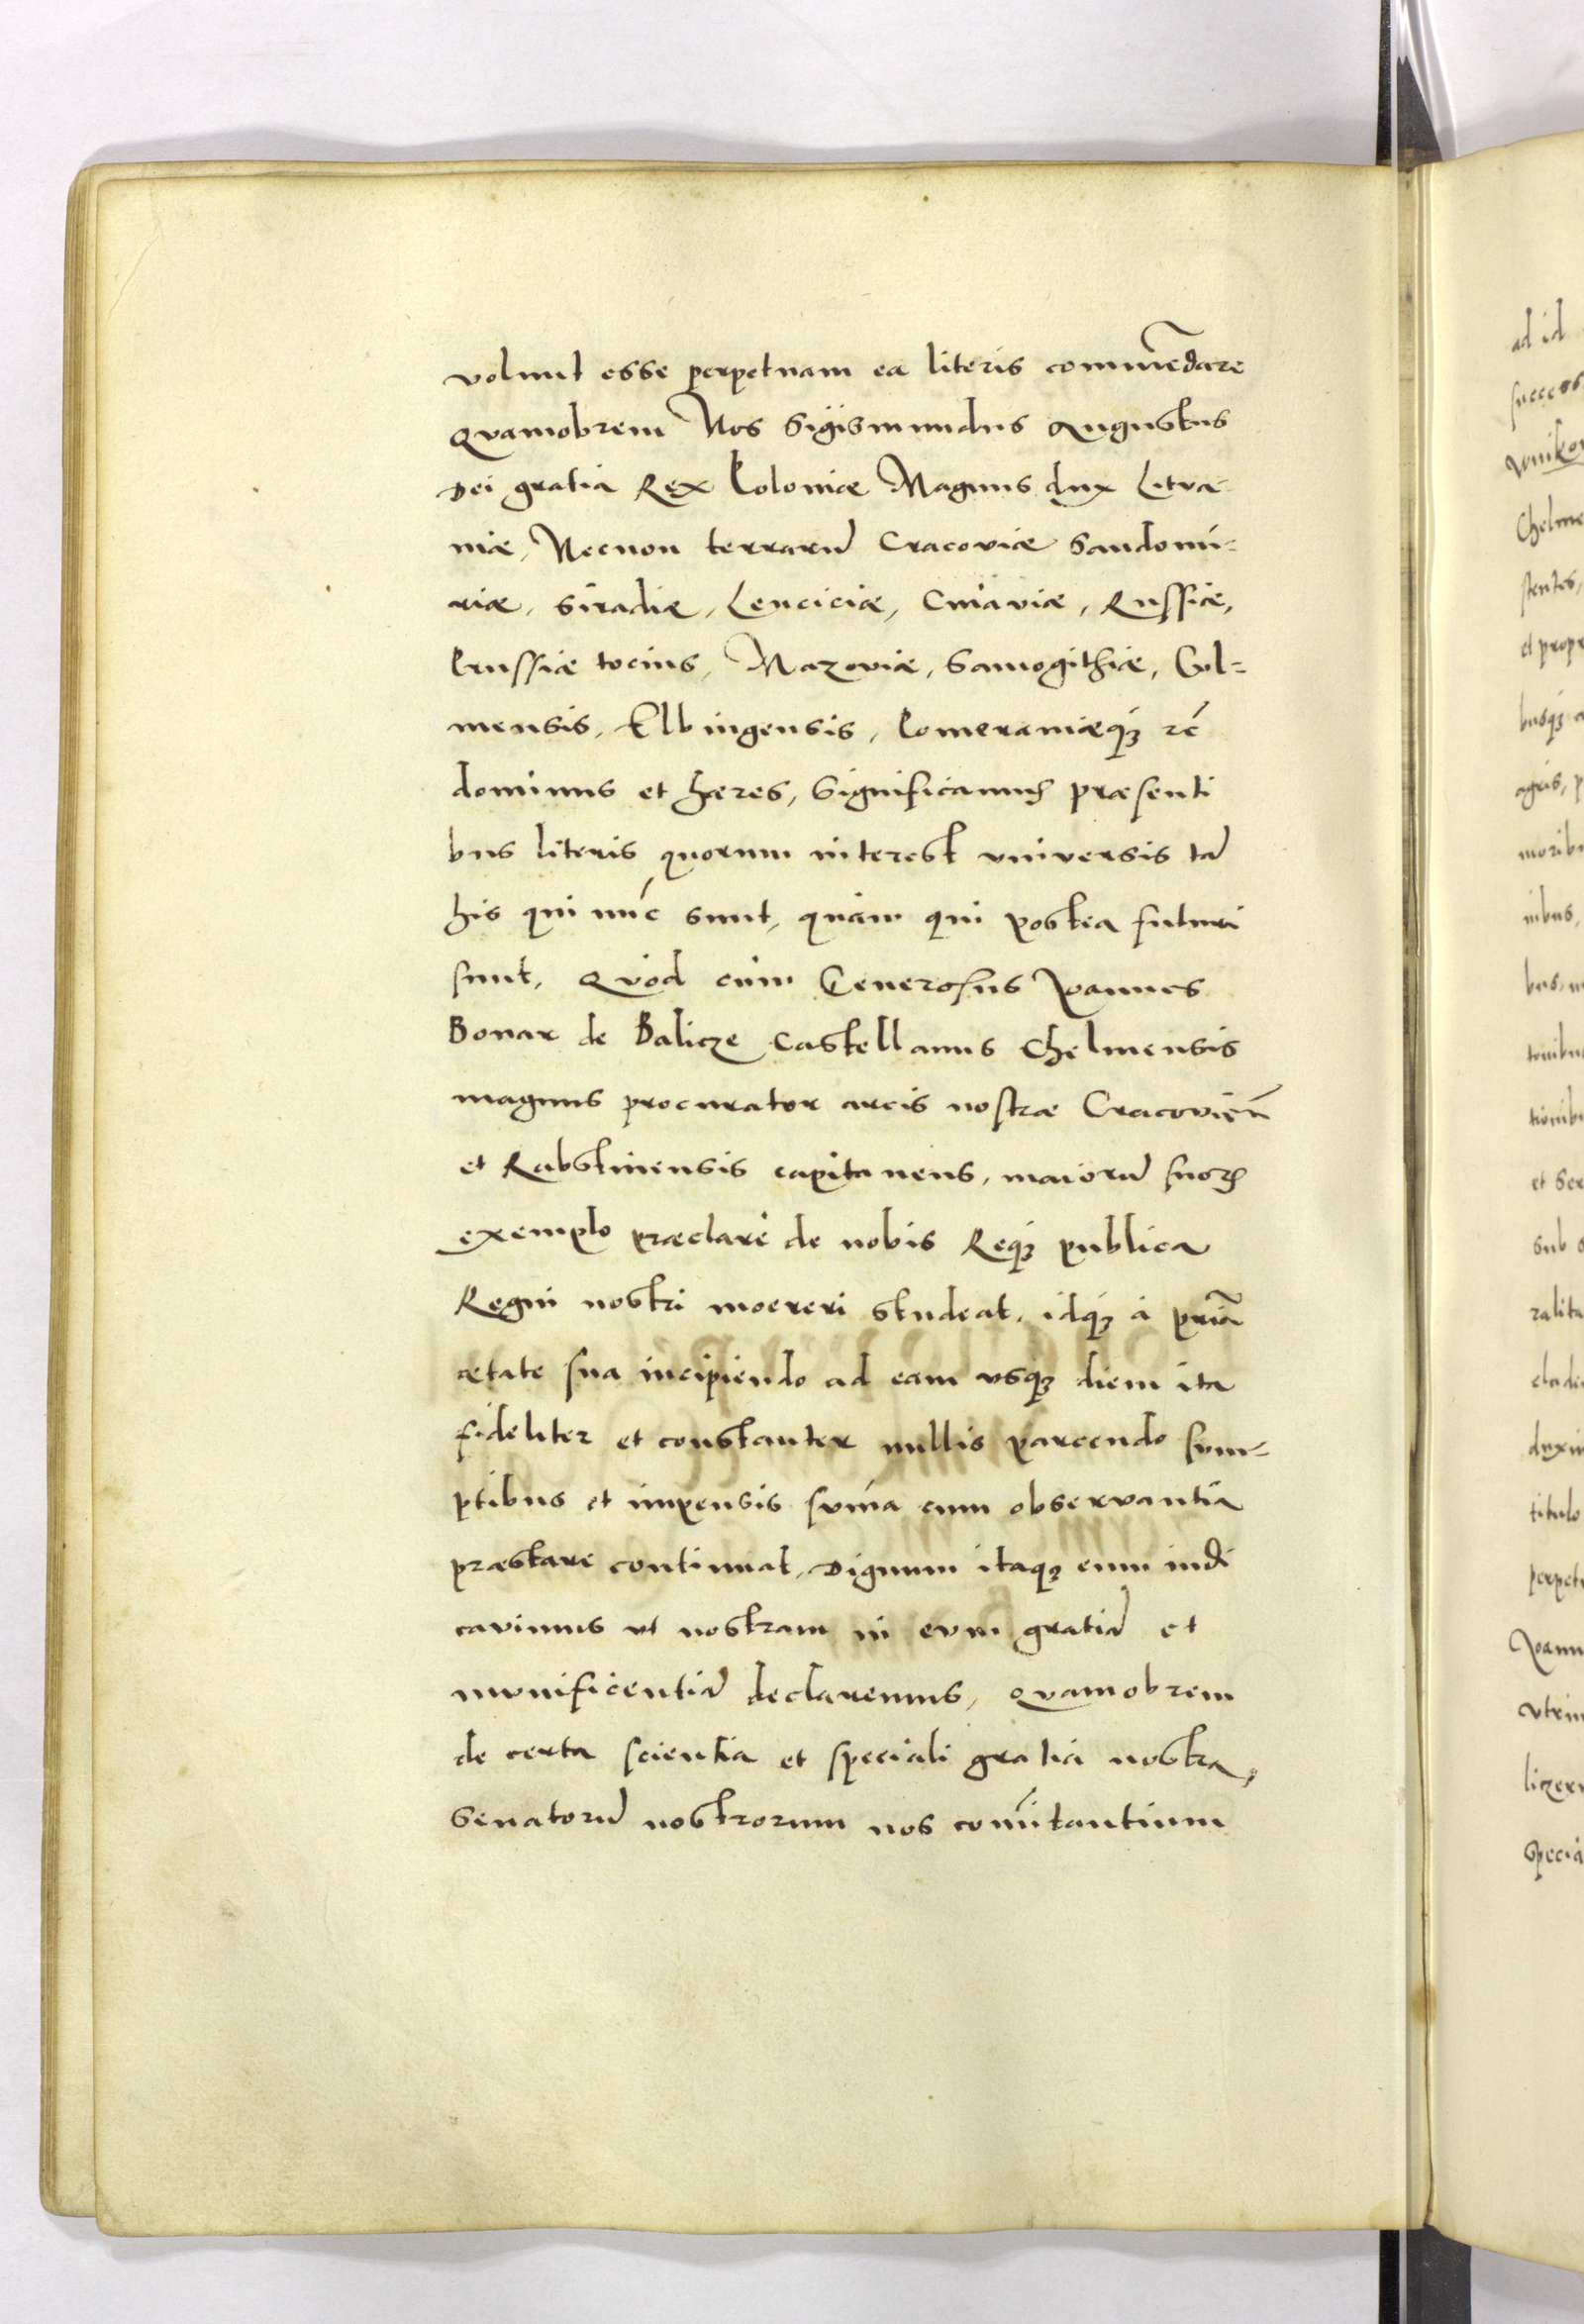 volunt esse perpetuam ea literis commēdare
Quamobrem Nos Sigismundus Augustus
Dei gratia Rex Poloniæ Magnus dux Litva
niæ, Necnon terrarū Cracoviæ Sandomi-
riæ, Siradiæ, Lenciciæ, Cuiaviæ, Russiæ,
Prussiæ tocius, Mazoviæ, Samogithiæ, Col-
mensis, Elbingensis, Pomeraniæqꝫ zc̄
dominus et hæres, Significamus præsenti
bus literis quorum interest universis tā
his qui nūc sunt, quàm qui postea futuri
sunt, Quòd cùm Generosus Joannes
Bonar de Balicze Castellanus Chelmensis
magnus procurator arcis nostræ Cracovieñ
et Rabstinensis capitaneus, maiorū suoꝝ
exemplo præclarè de nobis Reqꝫ publica
Regni nostri moereri studeat, idqꝫ à primā
ætate sua incipiendo ad eam usqꝫ diem ita
fideliter et constanter nullis parcendo sum-
ptibus et impensis sum̄a cum observantia
præstare continuat, Dignum itaqꝫ eum iudi
cavimus ut nostram in eum gratiā et
munificentiā declaremus, Quamobrem
de certa scientia et speciali gratia nostra,
Senatorū nostrorum nos com̄itantium
ad id
Chelme
stentes,
et prope
busqꝫ a
agris, p
nibus,
et Ser
sub s
ralita
titulo
perpetu
Joann
Specia